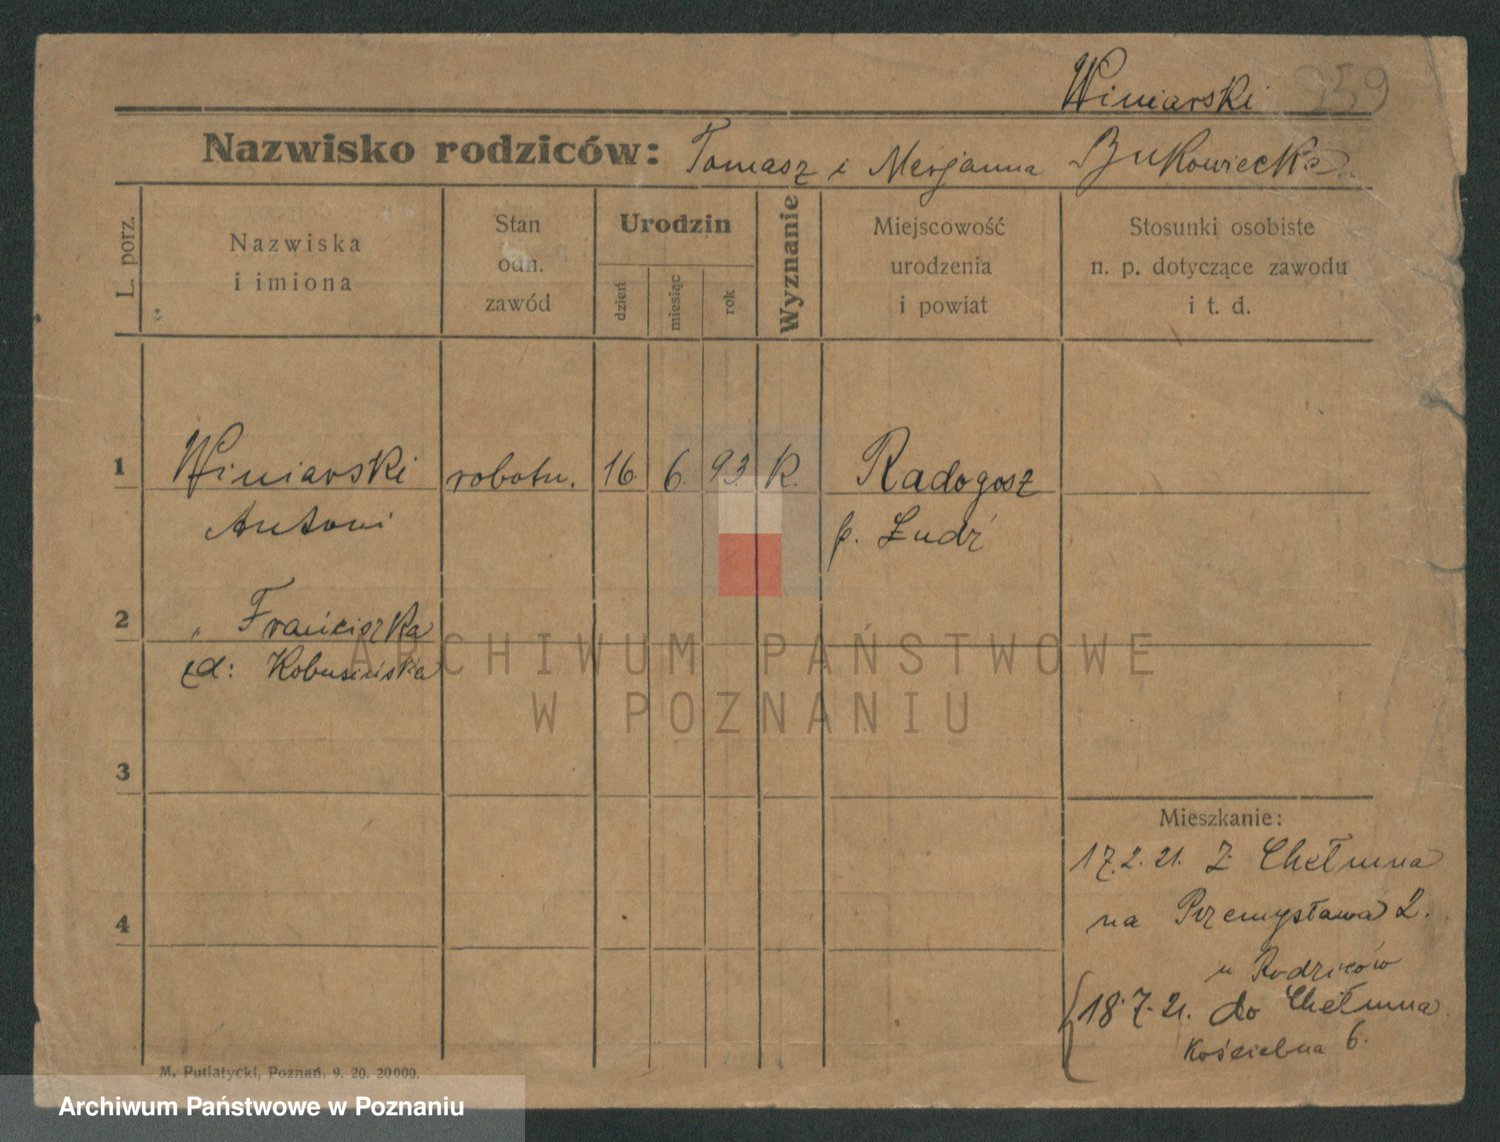 Winiarski 959
Nazwisko rodziców: Tomasz i Marjanna Bukowiecka
L. porz.
Nazwiska
i imiona
Stan
odn.
zawód
Urodzin
dzień
miesiąc
rok
Wyznanie
Miejscowość
urodzenia
i powiat
Stosunki osobiste
n. p. dotyczące zawodu
i t. d.
1 Winiarski robotn. 16. 6. 93. K. Radogosz
Antoni p. Łudź
2 „ Franciszka
zd: Kobusińska
3
Mieszkanie:
17.2.21. Z Chełmna
4
na Przemysława 2.
u Rodziców
18.7.21. do Chełmna
Kościelna 6.
M. Putiatycki, Poznań. 9. 20. 20000.
ARCHIWUM PAŃSTWOWE
W POZNANIU
Archiwum Państwowe w Poznaniu